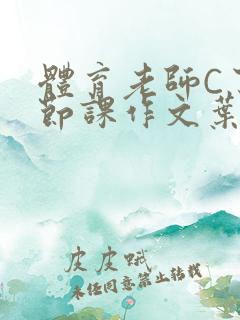 體育老師C了
節課作文葉
皮皮蛾
未經同意禁止轉載